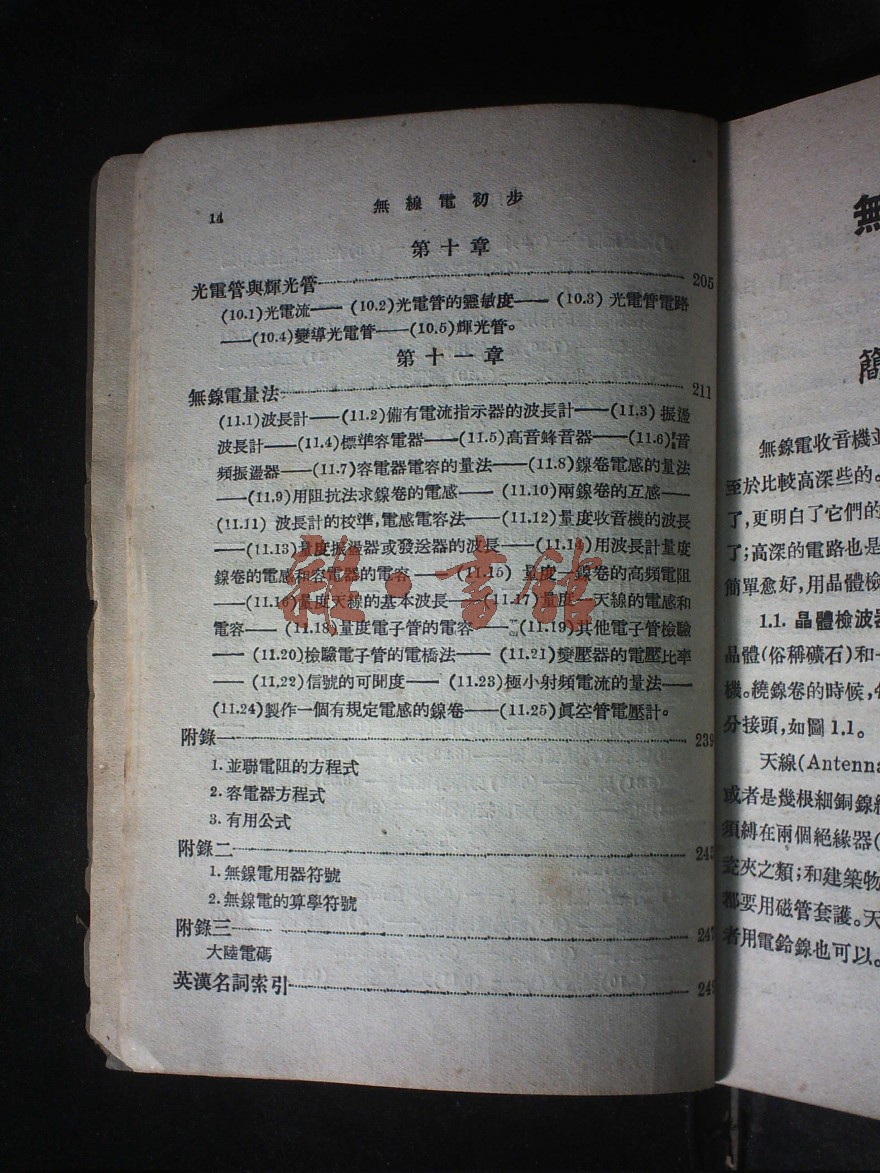 14
無線電初步
第十章
光電管與輝光管 205
(10.1)光電流—— (10.2)光電管的靈敏度—— (10.3) 光電管電路
——(10.4)變導光電管——(10.5)輝光管。
第十一章
無線電量法 211
(11.1)波長計——(11.2)備有電流指示器的波長計——(11.3) 振盪
波長計——(11.4)標準容電器——(11.5)高音蜂音器——(11.6)音
頻振盪器——(11.7)容電器電容的量法——(11.8)線卷電感的量法
——(11.9)用阻抗法求線卷的電感—— (11.10)兩線卷的互感——
(11.11) 波長計的校準,電感電容法——(11.12)量度收音機的波長
——(11.13)量度振盪器或發送器的波長——(11.14)用波長計量度
線卷的電感和容電器的電容——(11.15) 量度一線卷的高頻電阻
——(11.16)量度天線的基本波長——(11.17)量度一天線的電感和
電容—— (11.18)量度電子管的電容——(11.19)其他電子管檢驗
——(11.20)檢驗電子管的電橋法—— (11.21)變壓器的電壓比率
——(11.22)信號的可聞度——(11.23)極小射頻電流的量法——
(11.24)製作一個有規定電感的線卷——(11.25)真空管電壓計。
附錄一 239
1. 並聯電阻的方程式
2. 容電器方程式
3. 有用公式
附錄二 245
1. 無線電用器符號
2. 無線電的算學符號
附錄三 247
大陸電碼
英漢名詞索引 249
雜·書館
無
簡
無線電收音機並
至於比較高深些的。
了,更明白了它們的
了;高深的電路也是
簡單愈好,用晶體檢
1.1. 晶體檢波器
晶體(俗稱礦石)和一
機。繞線卷的時候,
分接頭,如圖1.1。
天線(Antenna
或者是幾根細銅線
須縛在兩個絕緣器(
夾之類;和建築物
都要用磁管套護。天
者用電鈴線也可以。